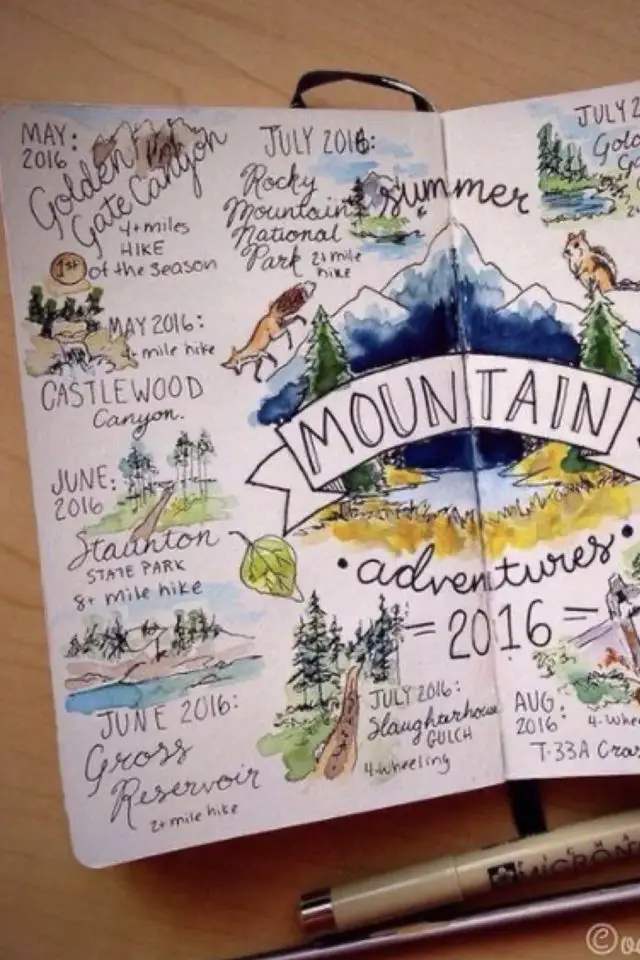 MAY:
2016:
Golden
Gate Canyon
4+ miles
HIKE
1st of the season
MAY 2016:
mile hike
CASTLEWOOD
Canyon.
JUNE:
2016
Staunton
STATE PARK
8+ mile hike
JUNE 2016:
Gross
Reservoir
2+ mile hike
JULY 2016:
Rocky
Mountain
National
Park 2+ mile
hike
summer
MOUNTAIN
•adventures•
=2016=
JULY 2016:
Slaughterhouse
GULCH
4-wheeling
JULY
AUG:
2016:
T-33A
MICRON
©